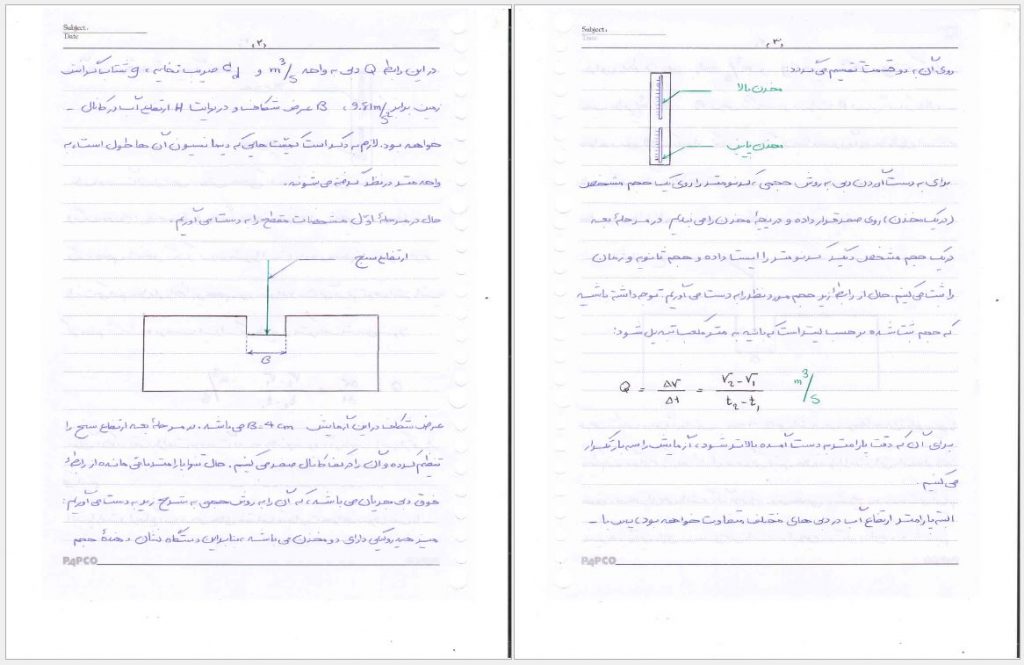 Subject:
Date
۰۲۰
در این رابطه Q دبی به واحد m³/s و Cd ضریب تخلیه، g شتاب گرانش
زمین برابر 9.81 m/s²، B عرض شکاف و در نهایت H ارتفاع آب در کانال -
خواهد بود. لازم به ذکر است کمیت هایی که دیمانسیون آن ها طول است، به
واحد متر در نظر گرفته می شوند.
حال در مرحلهٔ اوّل مشخصات مقطع را به دست می آوریم.
ارتفاع سنج
B
عرض شکاف در این آزمایش B=4 cm می باشد. در مرحلهٔ بعد ارتفاع سنج را
تنظیم کرده و آن را در کف کانال صفر می کنیم. حال تنها پارامتر باقی مانده از رابطهٔ
فوق دبی جریان می باشد، که آن را به روش حجمی به شرح زیر به دست می آوریم:
میز هیدرولیکی دارای دو مخزن می باشد، بنابراین دستگاه نشان دهندهٔ حجم
PAPCO
Subject:
Date
۰۳۰
روی آن، دو قسمت تقسیم می گردد:
مخزن بالا
مخزن پایین
برای به دست آوردن دبی به روش حجمی، کرنومتر را روی یک حجم مشخص
(در یک مخزن) روی صفر قرار داده و دریچهٔ مخزن را می بندیم. در مرحلهٔ بعد
در یک حجم مشخص دیگر کرنومتر را ایستا داده و حجم ثانویه و زمان
را ثبت می کنیم. حال از رابطهٔ زیر حجم مورد نظر را به دست می آوریم. توجه داشته باشید
که حجم ثبت شده بر حسب لیتر است که باید به متر مکعب تبدیل شود:
Q = ΔV/Δt = V₂-V₁/t₂-t₁ m³/s
برای آن که دقت پارامتر به دست آمده بالاتر شود، آزمایش را سه بار تکرار
می کنیم.
البته پارامتر ارتفاع آب در دبی های مختلف متفاوت خواهد بود، پس با -
PAPCO